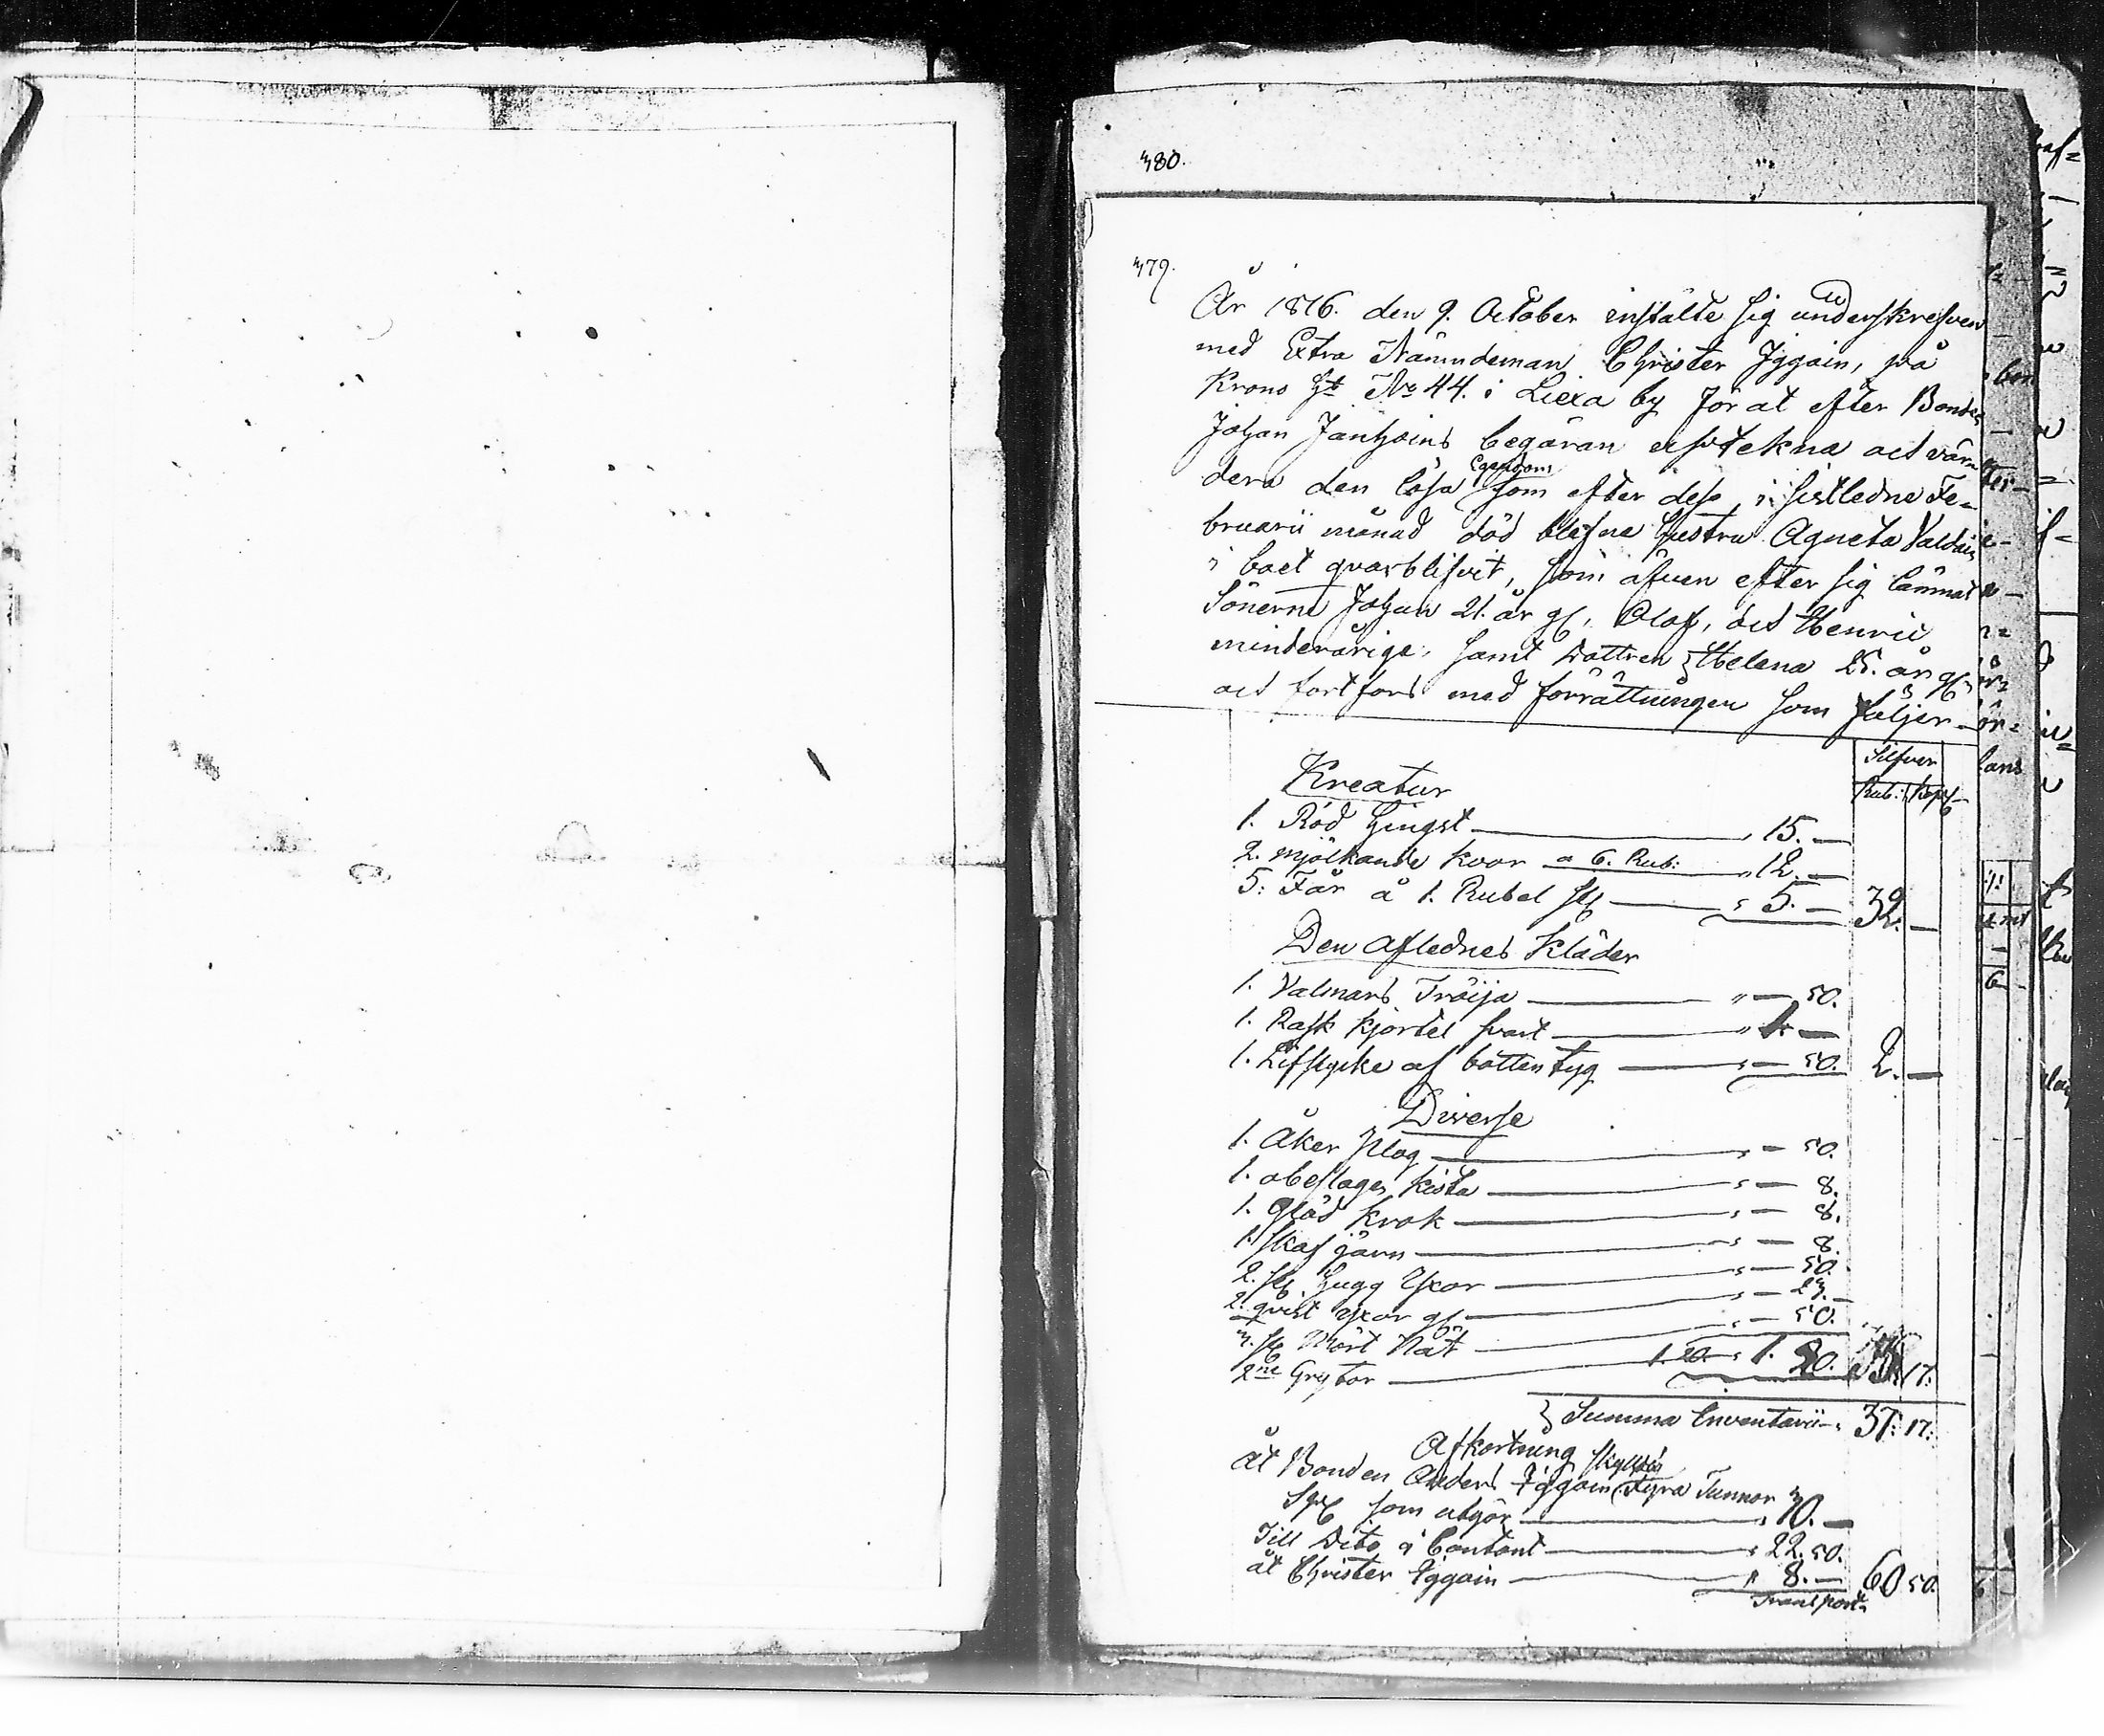 480.
479.
År 1816. den 9. October instälte sig underskrefven
med Extra Nämndeman Christer Iggoin, på
Krono Ht No 44. i Liexa by för at efter Bonden
Johan Jantzoins begäran upteckna och vär-
dera den lösa Egendom som efter dess i sistledne Fe-
bruarii månad död blefne hustru Agneta Valdoin
i boet qvarblifvit, som äfven efter sig lämnat
Sönerne Johan 21. år gl, Olof, och Henric
minderårige, samt Dottren Helena 25. år gl,
och fortfors med förrättningen som följer
Silfver
Rub: Kop.
Kreatur
1. Röd Hingst 15. —
2. mjölkande koor a 6. Rub: 12. —
5: Får å 1. Rubel st 5. — 32. —
Den Aflednes Kläder
1. Valmars Tröija — 50.
1. Rask kjortel svart 1. —
1. Lifstycke af botten tyg — 50. 2. —
Diverse
1. Åker Plog — 50.
1. obeslagen Kista — 8.
1. Glöd krok — 8.
1. skaf järn — 8.
2. st Hugg Yxor — 50.
2. qvist yxor gl — 23.
4. st Mört Nät — 50.
2ne Grytor 1. 20. 17:
Summa Inventarii 37: 17:
Afkortning
åt Bonden Anders Iggoin skyldig Fyra Tunnor
Spl som utgör 30. —
Till Dito i Contant 22. 50.
åt Christer Iggoin 8. — 60 50.
Transport